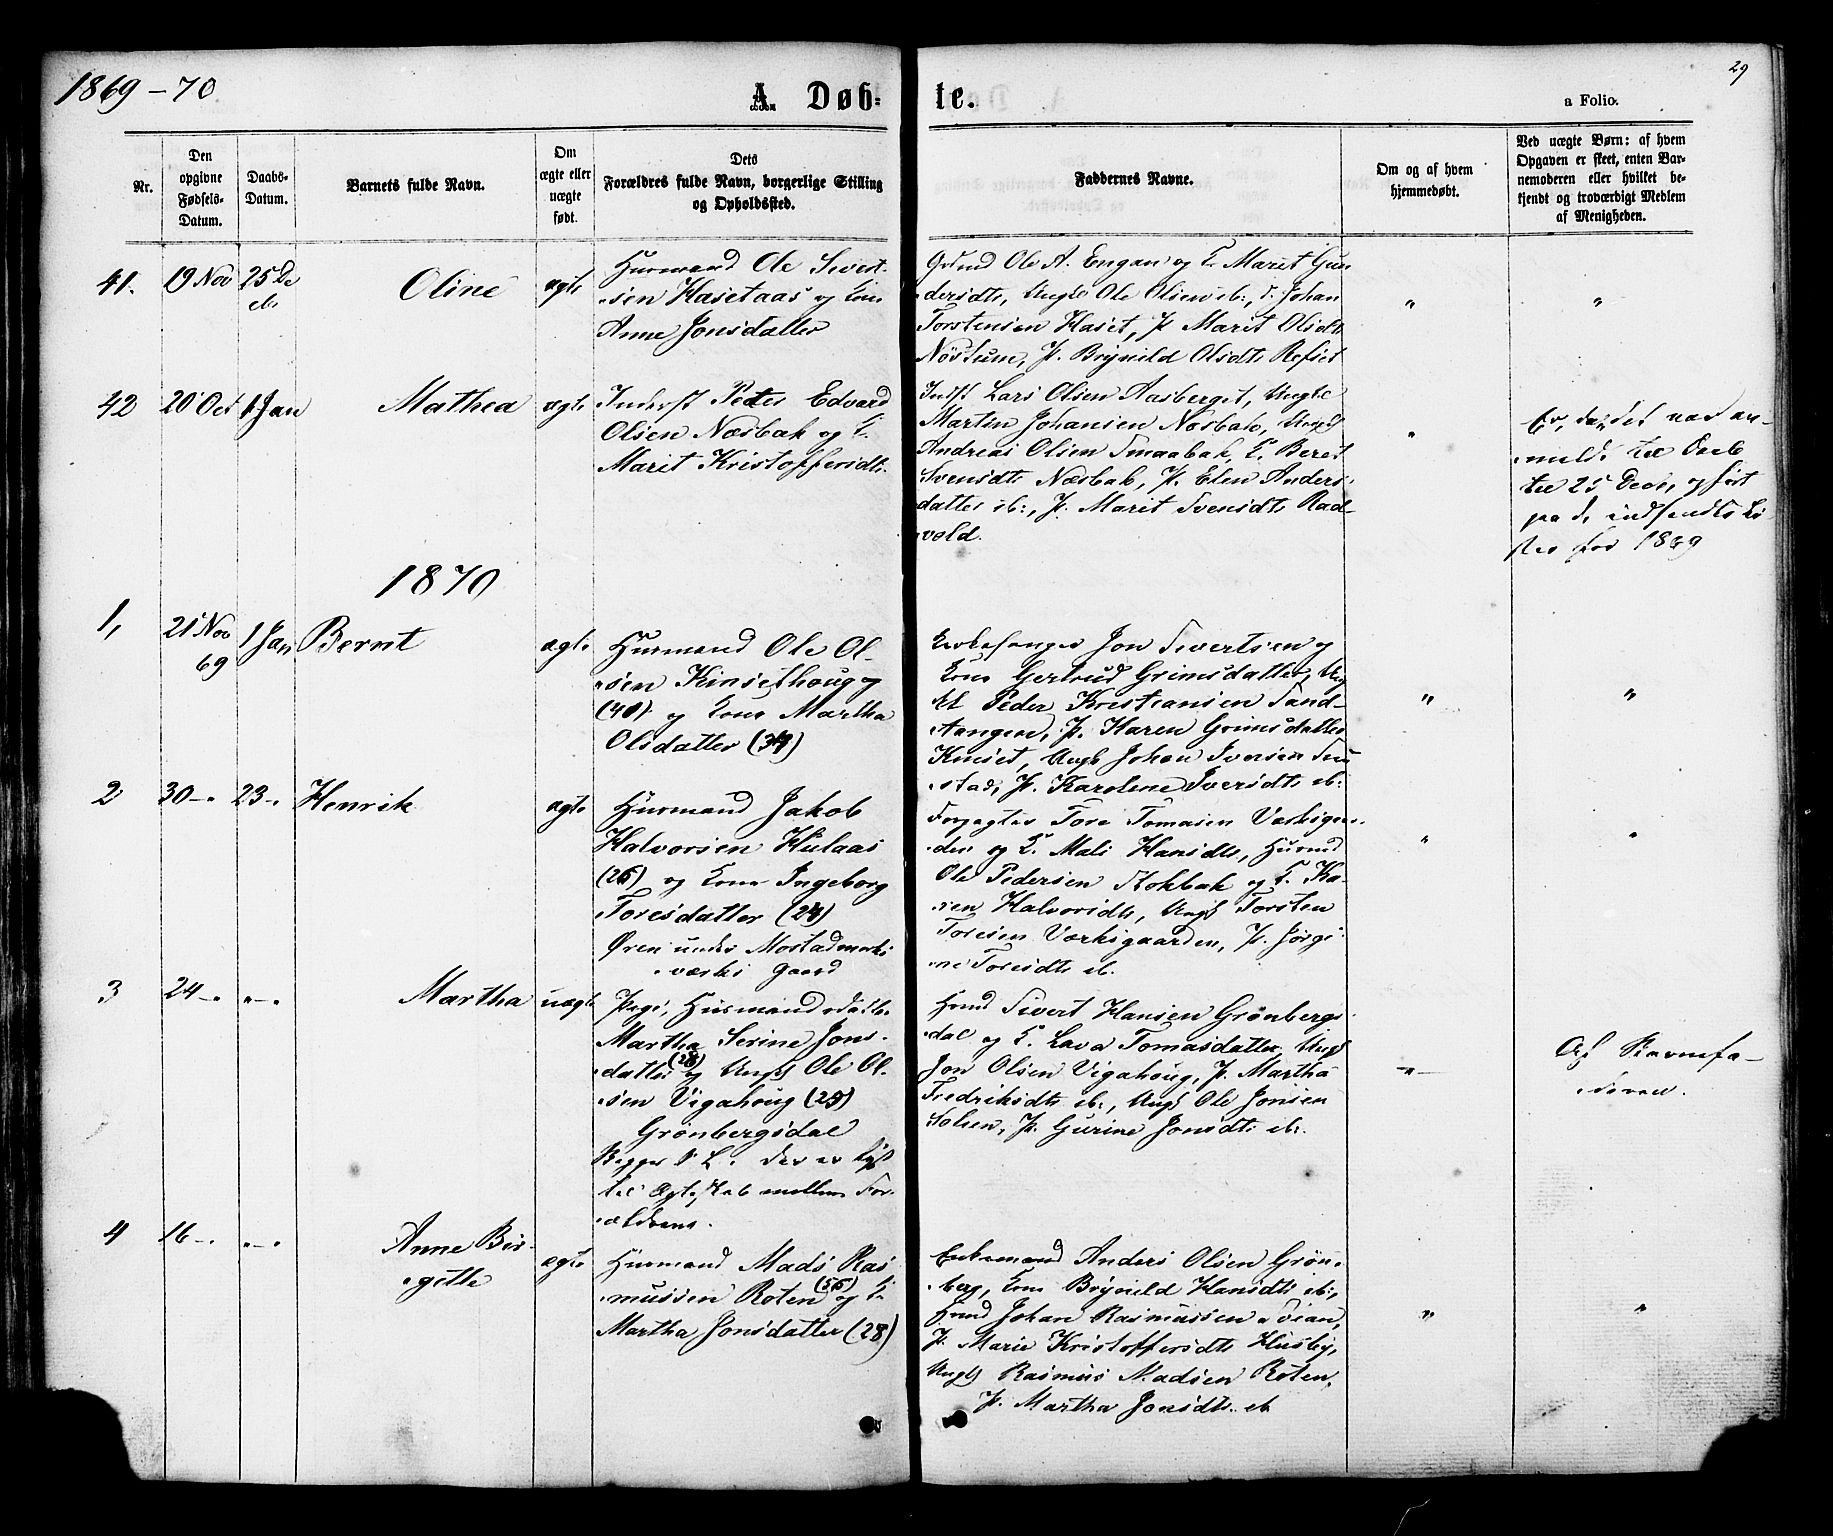 1869-70
A. Døb-
te.
29
a Folio.
Nr.
Den
opgivne
Fødsels-
Datum.
Daabs-
Datum.
Barnets fulde Navn.
Om
ægte eller
uægte
født.
Dets
Forældres fulde Navn, borgerlige Stilling
og Opholdssted.
Faddernes Navne.
Om og af hvem
hjemmedøbt.
Ved uægte Børn: af hvem
Opgaven er skeet, enten Bar-
nemoderen eller hvilket be-
kjendt og troværdigt Medlem
af Menigheden.
41.
19 Nov
25 De
cb.
Oline
ægte
Husmand Ole Sivert-
sen Hasetaas og Kone
Anne Jonsdatter
Ole A. Engan og K. Marit Gun
dersdt., Ungk. Ole Olsen ib:, Johan
Torstensen Haset, P. Marit Olsdt.
Nöstum, P. Brynild Olsdt. Refset
"
"
42
20 Oct
1 Jan
Mathea
ægte
Inderst Peter Edvard
Olsen Næsbak og K.
Marit Kristoffersdt.
Indst. Lars Olsen Aasberget, Ungk.
Martin Johansen Næsbak, Ungk.
Andreas Olsen Smaabak, K. Beret
Svensdt. Næsbak, P. Elen Anders-
datter ib:, P. Marit Svensdt. Rad-
vold.
"
Er, da det var an-
meldt til Daab
til 25 Decb, og ført
paa de indsendte Li-
ster for 1869
1870
1,
21 Nov
69
1 Jan
Bernt
ægte
Husmand Ole Ol-
sen Kinsethoug
(40) og Kone Martha
Olsdatter (34)
Kirkesanger Jon Sivertsen og
Kone Gertrud Grimsdatter, Ung
k. Peder Kristiansen Sand-
tangen, P. Karen Grimsdatter
Kinset, Ungk. Johan Iversen
stad, P. Karoline Iversdt. ib:
"
"
2
30 -"
23 -"
Henrik
ægte
Husmand Jakob
Halvorsen Hulaas
(26) og Kone Ingeborg
Toresdatter (24)
Øren under Mostadmarks
værks Gaard
Forpagter Tore Tomasen Værksgaar-
den og K. Mali Hansdt., Husmd
Ole Pedersen Stokbak og K. Ka-
ren Halvorsdt., Ungk. Torsten
Toresen Værksgaarden, P. Jörgi-
ne Toresdt. ib.
"
"
3
24 -"
"-"
Martha
uægte
Pige, Husmandsdatter
Martha Serine Jons-
datter (28) og Ungk. Ole Ol-
sen Vigahoug (25)
Grönbergsdal
Begges 1 L. der er lyst
til Ægteskab mellem For-
ældrene.
Husmd Sivert Hansen Grönbergs-
dal og K. Lava Tomasdatter, Ungk.
Jon Olsen Vigahoug, P. Martha
Fredriksdt. ib:, Ungk. Ole Jonsen
Solsen, P. Gurine Jonsdt. ib:
"-
Af Barnefa-
deren.
4
16 -"
"-"
Anne Bir-
gitte
ægte
Husmand Mads Ras
mussen Roten (56) og K.
Martha Jonsdatter (28)
Enkemand Anders Olsen Grön-
berg, Kone Brynild Hansdt. ib:,
Husmd Johan Rasmussen Svian,
P. Marie Kristoffersdt. Husby,
Ungk. Rasmus Madsen Roten,
P. Martha Jonsdt. ib
"
"